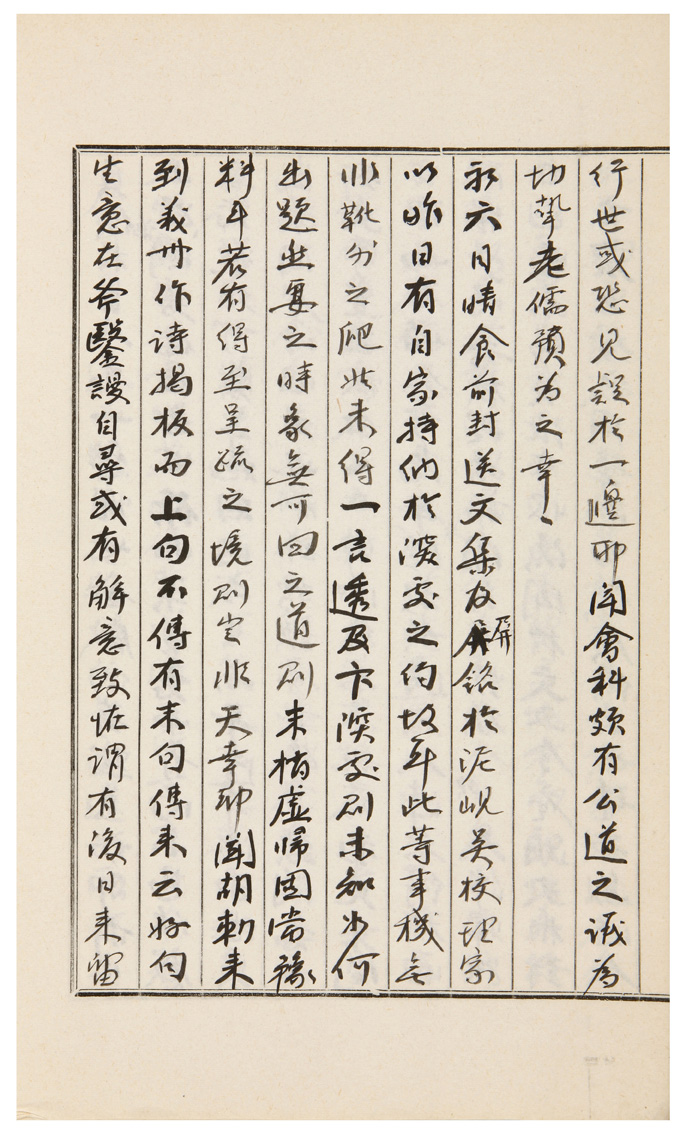 行世或恐見誤於一邊耶聞會科頗有公道之誠為
切摯老儒預為之幸〻
初六日晴食前封送文集及屏銘於泥峴吳校理家
以昨日有自家持納於深處之約故耳此等事機無
非靴外之爬姑未得一言透及卞深處則未知如何
出題然要之時象無可回之道則未指虛帰固當豫
料耳若有得至呈疏之境則豈非天幸耶聞胡勅來
到義州作詩揭板而上句不傳有末句傳來云好句
生意在斧鑿謾自尋或有解意致怪謂有後日來留